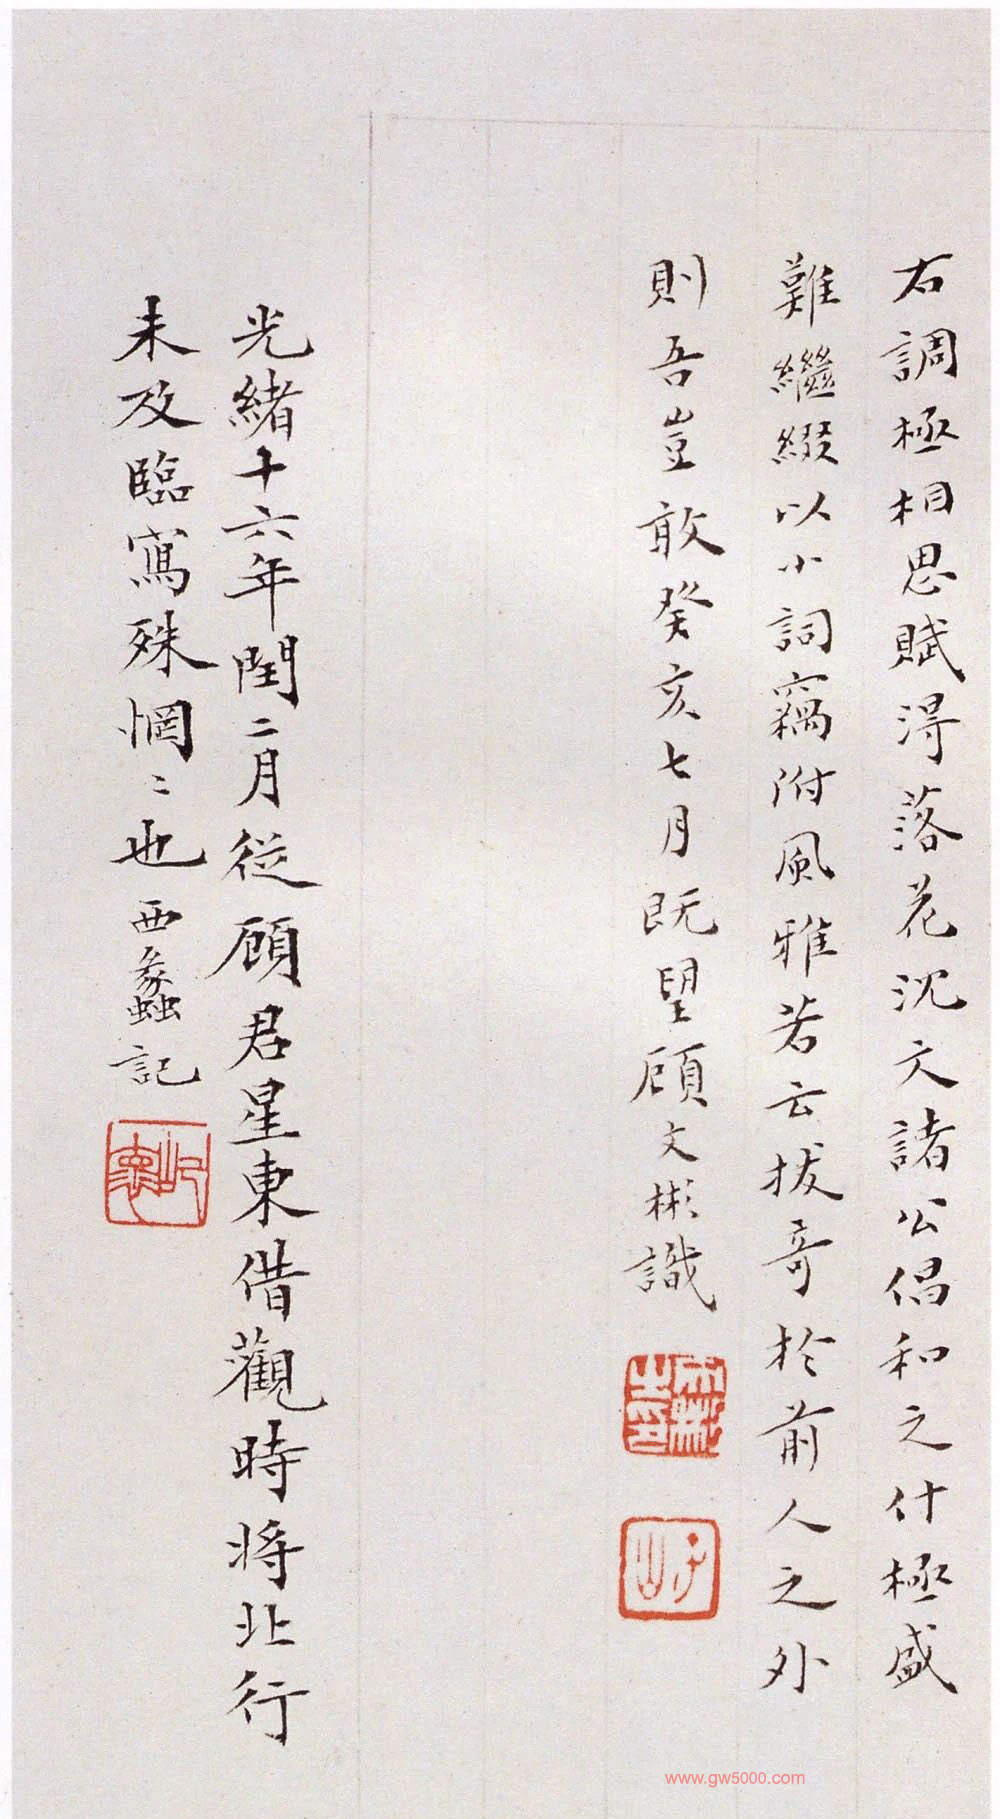 右調極相思賦得落花沈文諸公倡和之什極盛
難繼綴以小詞竊附風雅若云拔奇於前人之外
則吾豈敢癸亥七月既望顧文彬識
文彬之印
子山
光緒十六年閏二月從顧君星東借觀時將北行
未及臨寫殊惘〻也西蠡記
屺懷
www.gw5000.com